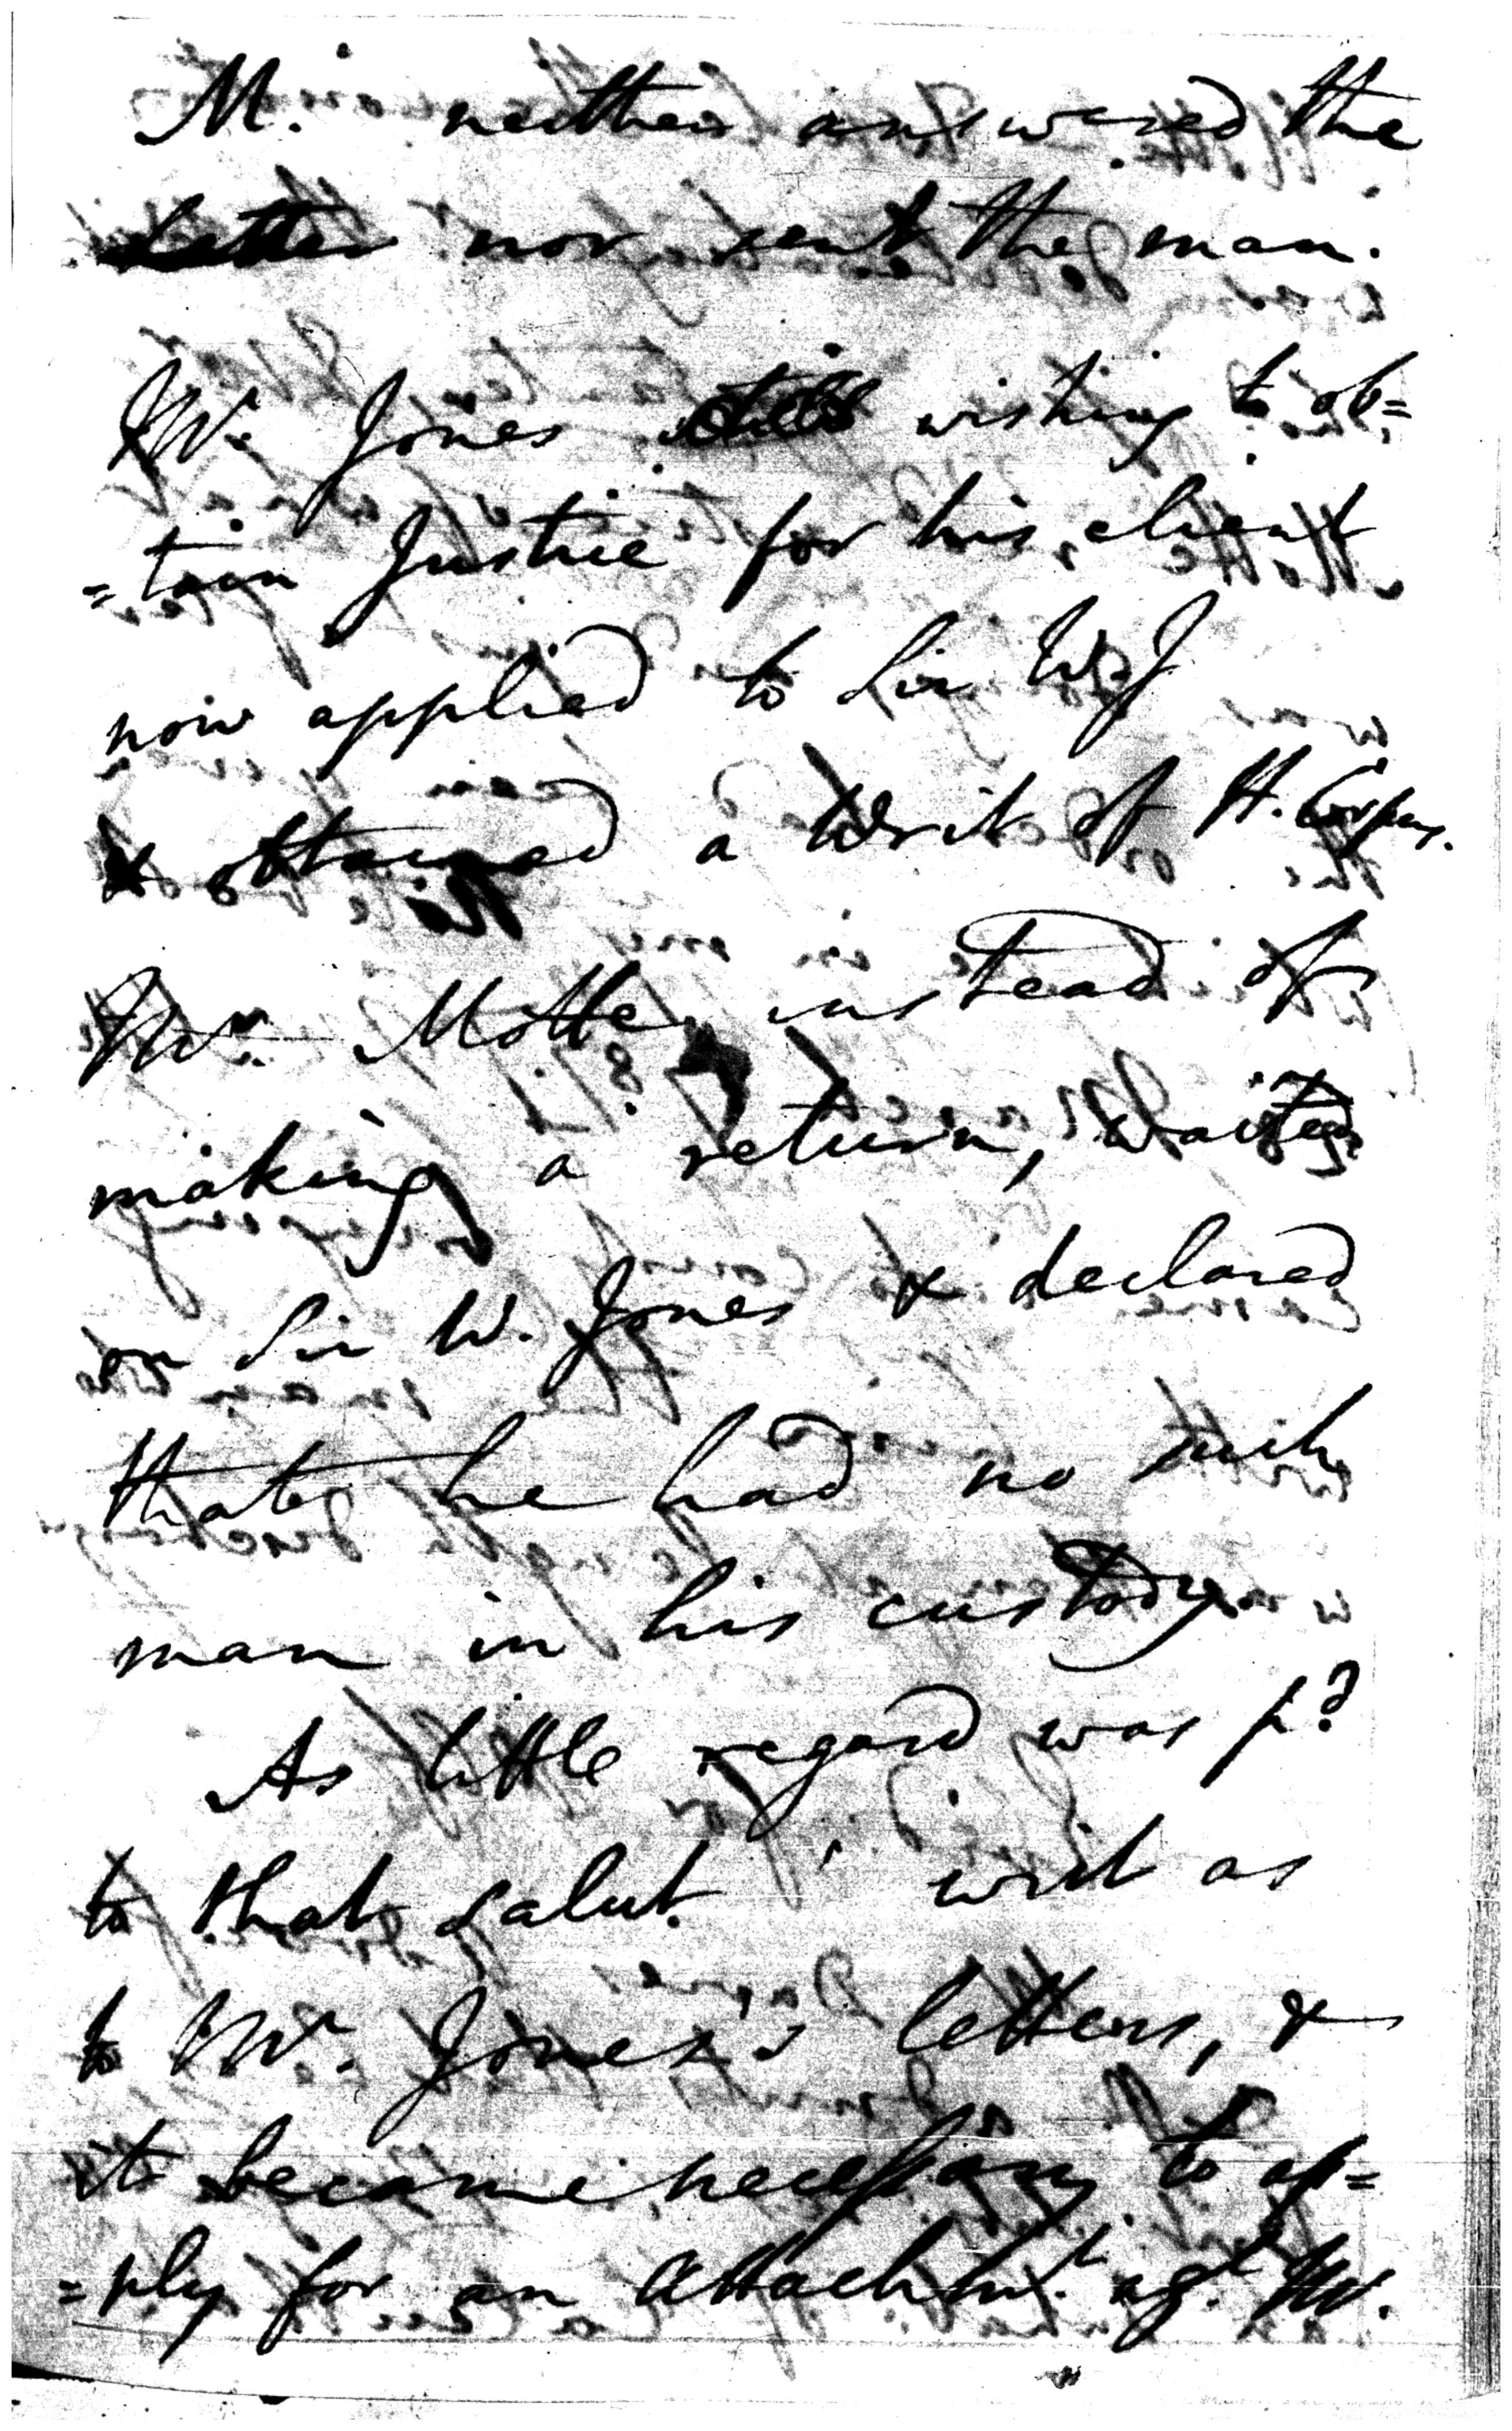 M. neither answered the
Letter nor sent the man.
Mr. Jones wishing to ob=
=tain Justice for his client
now applied to Sir W J
& obtained a Writ of H. Corpus.
Mr. Motte, instead of
making a return, waited
on Sir W. Jones & declared
that he had no such
man in his custody
As little regard was pd
to that salut. writ as
to Mr. Jones's letters, &
it became necessary to ap=
=ply for an Attachmt. agt. M.